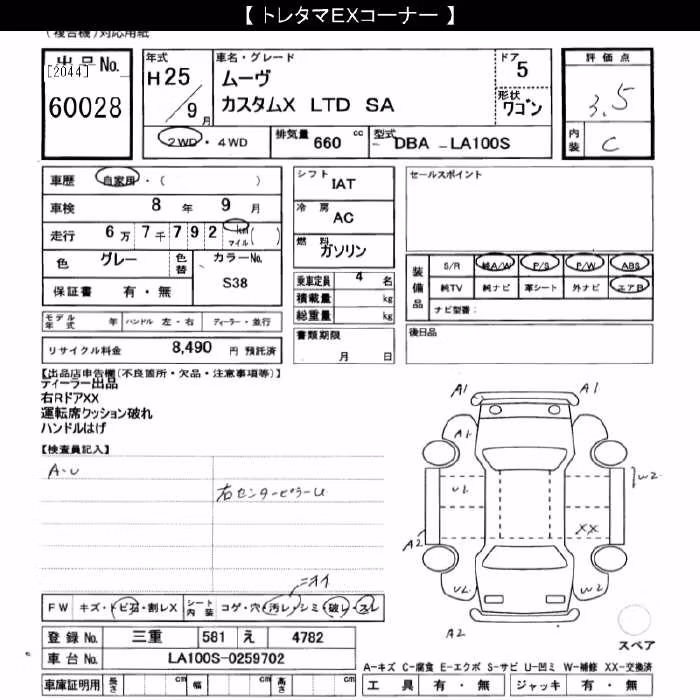 【 トレタマEXコーナー 】
(複合機)対応用紙
出品No.
[2044]
60028
年式
H 25
/ 9 月
車名・グレード
ムーヴ
カスタムX LTD SA
ドア
5
形状
ワゴン
評価点
3.5
内装
C
2WD・4WD
排気量 660 cc
型式 DBA - LA100S
車歴 自家用・( )
車検 8 年 9 月
走行 6 万 7 千 7 9 2 km マイル ( )
色 グレー 色替
カラーNo.
S38
保証書 有・無
モデル年式 年 ハンドル 左・右 ディーラー・並行
リサイクル料金 8,490 円 預託済
シフト
IAT
冷房
AC
燃料
ガソリン
乗車定員 4 名
積載量 kg
総重量 kg
書類期限
月 日
セールスポイント
装備品
S/R 純A/W P/S P/W ABS
純TV 純ナビ 革シート 外ナビ エアB
ナビ型番:
後日品
【出品店申告欄(不良箇所・欠品・注意事項等)】
ディーラー出品
右RドアXX
運転席クッション破れ
ハンドルはげ
【検査員記入】
A-U
右センターピラーU
A1 A1
A1
W2
UL
XX
A2
UL W2
A2
スペア
ニオイ
FW キズ・トビ石・割レX シート内装 コゲ・穴・汚レ・シミ・破レ・スレ
登録 No. 三重 581 え 4782
車台 No. LA100S-0259702
車庫証明用 長さ cm 幅 cm 高さ cm
A-キズ C-腐食 E-エクボ S-サビ U-凹ミ W-補修 XX-交換済
工具 有・無 ジャッキ 有・無